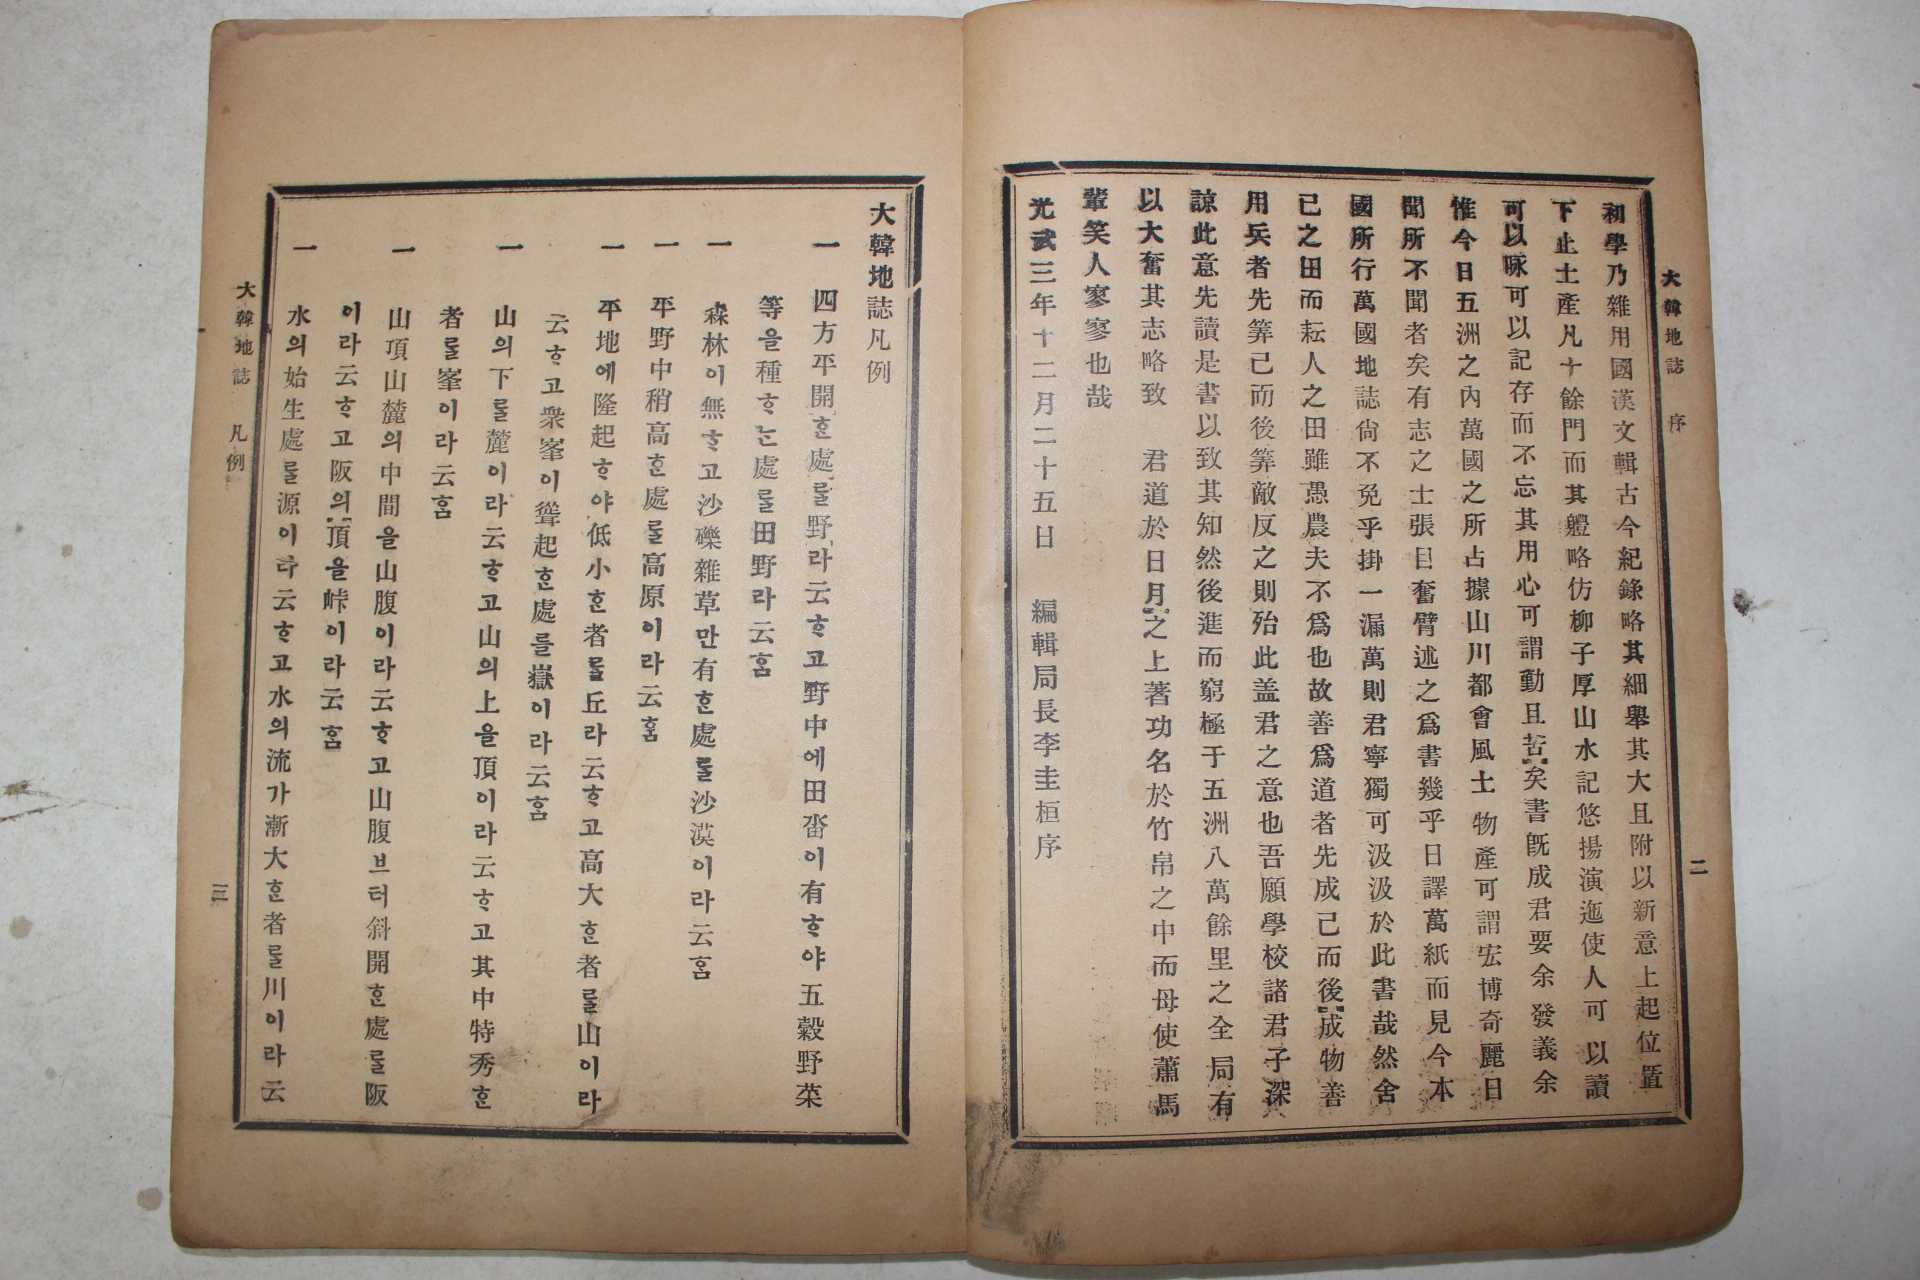 大韓地誌 序 二
初學乃雜用國漢文輯古今紀錄略其細舉其大且附以新意上起位置
下止土產凡十餘門而其軆略仿柳子厚山水記悠揚演迤使人可以讀
可以咏可以記存而不忘其用心可謂動且苦矣書旣成君要余發義余
惟今日五洲之內萬國之所占據山川都會風土物產可謂宏博奇麗日
聞所不聞者矣有志之士張目奮臂述之爲書幾乎日譯萬紙而見今本
國所行萬國地誌尙不免乎掛一漏萬則君寧獨可汲汲於此書哉然舍
己之田而耘人之田雖愚農夫不爲也故善爲道者先成己而後成物善
用兵者先筭己而後筭敵反之則殆此盖君之意也吾願學校諸君子深
諒此意先讀是書以致其知然後進而窮極于五洲八萬餘里之全局有
以大奮其志略致 君道於日月之上著功名於竹帛之中而母使蕭馬
輩笑人寥寥也哉
光武三年十二月二十五日 編輯局長李圭桓序
大韓地誌凡例
一 四方平開ᄒᆞᆫ處ᄅᆞᆯ野라云ᄒᆞ고野中에田畓이有ᄒᆞ야五穀野菜
等을種ᄒᆞᄂᆞᆫ處ᄅᆞᆯ田野라云홈
一 森林이無ᄒᆞ고沙礫雜草만有ᄒᆞᆫ處ᄅᆞᆯ沙漠이라云홈
一 平野中稍高ᄒᆞᆫ處ᄅᆞᆯ高原이라云홈
一 平地에隆起ᄒᆞ야低小ᄒᆞᆫ者ᄅᆞᆯ丘라云ᄒᆞ고高大ᄒᆞᆫ者ᄅᆞᆯ山이라
云ᄒᆞ고衆峯이聳起ᄒᆞᆫ處를嶽이라云홈
一 山의下ᄅᆞᆯ麓이라云ᄒᆞ고山의上을頂이라云ᄒᆞ고其中特秀ᄒᆞᆫ
者ᄅᆞᆯ峯이라云홈
一 山頂山麓의中間을山腹이라云ᄒᆞ고山腹브터斜開ᄒᆞᆫ處ᄅᆞᆯ阪
이라云ᄒᆞ고阪의頂을峠이라云홈
一 水의始生處ᄅᆞᆯ源이라云ᄒᆞ고水의流가漸大ᄒᆞᆫ者ᄅᆞᆯ川이라云
大韓地誌 凡例 三